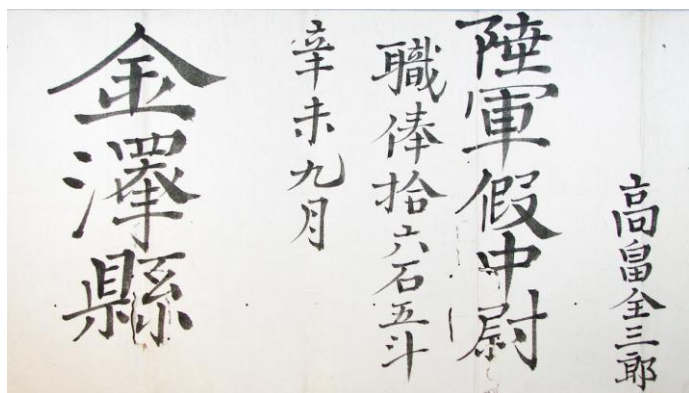 高畠全三郎
陸軍假中尉
職俸拾六石五斗
辛未九月
金澤縣